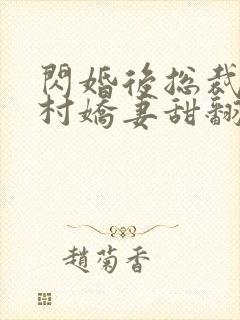 閃婚後總裁
村嬌妻甜翻
趙菊香